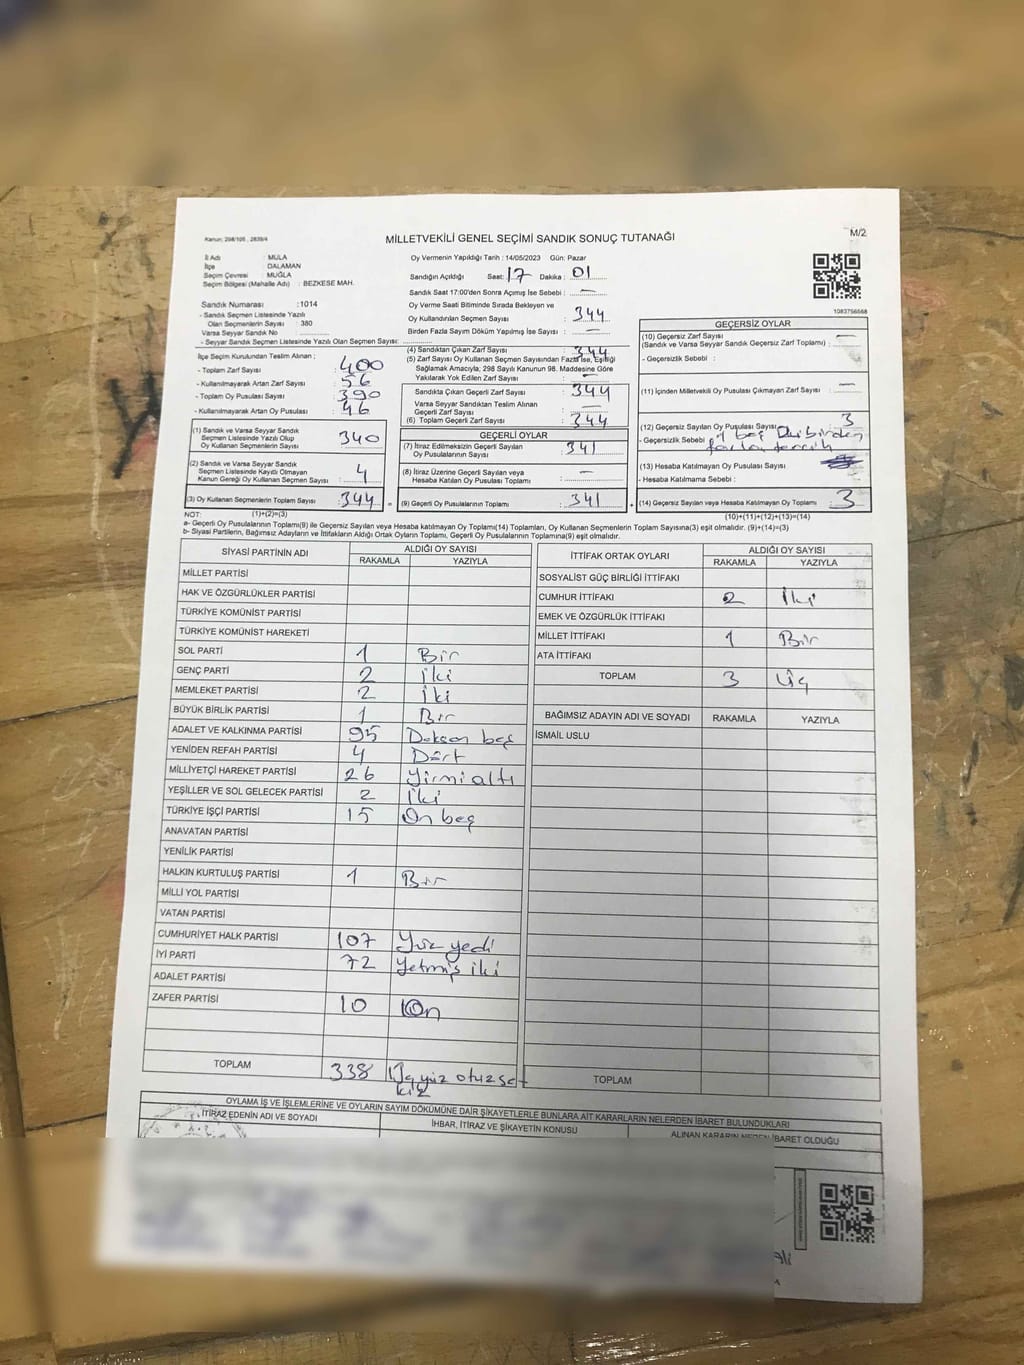 Kanun; 298/105 , 2839/4
MİLLETVEKİLİ GENEL SEÇİMİ SANDIK SONUÇ TUTANAĞI
M/2
İl Adı : MULA
İlçe : DALAMAN
Seçim Çevresi : MUĞLA
Seçim Bölgesi (Mahalle Adı) : BEZKESE MAH.
Sandık Numarası :1014
- Sandık Seçmen Listesinde Yazılı
Olan Seçmenlerin Sayısı : 380
Varsa Seyyar Sandık No :
- Seyyar Sandık Seçmen Listesinde Yazılı Olan Seçmen Sayısı:
Oy Vermenin Yapıldığı Tarih : 14/05/2023 Gün: Pazar
Sandığın Açıldığı Saat: 17 Dakika : 01
Sandık Saat 17:00'den Sonra Açımış İse Sebebi : —
Oy Verme Saati Bitiminde Sırada Bekleyen ve
Oy Kullandırılan Seçmen Sayısı : 344
Birden Fazla Sayım Döküm Yapılmış İse Sayısı : —
1083756568
İlçe Seçim Kurulundan Teslim Alınan ;
- Toplam Zarf Sayısı : 400
- Kullanılmayarak Artan Zarf Sayısı : 56
- Toplam Oy Pusulası Sayısı : 390
- Kullanılmayarak Artan Oy Pusulası : 46
(1) Sandık ve Varsa Seyyar Sandık
Seçmen Listesinde Yazılı Olup
Oy Kullanan Seçmenlerin Sayısı : 340
(2) Sandık ve Varsa Seyyar Sandık
Seçmen Listesinde Kayıtlı Olmayan
Kanun Gereği Oy Kullanan Seçmen Sayısı : 4
(3) Oy Kullanan Seçmenlerin Toplam Sayısı : 344
(4) Sandıktan Çıkan Zarf Sayısı : 344
(5) Zarf Sayısı Oy Kullanan Seçmen Sayısından Fazla İse, Eşitliği
Sağlamak Amacıyla; 298 Sayılı Kanunun 98. Maddesine Göre
Yakılarak Yok Edilen Zarf Sayısı : —
Sandıkta Çıkan Geçerli Zarf Sayısı : 344
Varsa Seyyar Sandıktan Teslim Alınan
Geçerli Zarf Sayısı : —
(6) Toplam Geçerli Zarf Sayısı : 344
GEÇERLİ OYLAR
(7) İtiraz Edilmeksizin Geçerli Sayılan
Oy Pusulalarının Sayısı : 341
(8) İtiraz Üzerine Geçerli Sayılan veya
Hesaba Katılan Oy Pusulası Toplamı : —
= (9) Geçerli Oy Pusulalarının Toplamı : 341 +
GEÇERSİZ OYLAR
(10) Geçersiz Zarf Sayısı
(Sandık ve Varsa Seyyar Sandık Geçersiz Zarf Toplamı) : —
- Geçersizlik Sebebi :
(11) İçinden Milletvekili Oy Pusulası Çıkmayan Zarf Sayısı : —
(12) Geçersiz Sayılan Oy Pusulası Sayısı : 3
- Geçersizlik Sebebi :
(13) Hesaba Katılmayan Oy Pusulası Sayısı :
- Hesaba Katılmama Sebebi :
(14) Geçersiz Sayılan veya Hesaba Katılmayan Oy Toplamı : 3
NOT: (1)+(2)=(3)
(10)+(11)+(12)+(13)=(14)
a- Geçerli Oy Pusulalarının Toplamı(9) ile Geçersiz Sayılan veya Hesaba katılmayan Oy Toplamı(14) Toplamları, Oy Kullanan Seçmenlerin Toplam Sayısına(3) eşit olmalıdır. (9)+(14)=(3)
b- Siyasi Partilerin, Bağımsız Adayların ve İttifakların Aldığı Ortak Oyların Toplamı, Geçerli Oy Pusulalarının Toplamına(9) eşit olmalıdır.
SİYASİ PARTİNİN ADI ALDIĞI OY SAYISI
RAKAMLA YAZIYLA
MİLLET PARTİSİ
HAK VE ÖZGÜRLÜKLER PARTİSİ
TÜRKİYE KOMÜNİST PARTİSİ
TÜRKİYE KOMÜNİST HAREKETİ
SOL PARTİ 1 Bir
GENÇ PARTİ 2 İki
MEMLEKET PARTİSİ 2 İki
BÜYÜK BİRLİK PARTİSİ 1 Bir
ADALET VE KALKINMA PARTİSİ 95 Doksan beş
YENİDEN REFAH PARTİSİ 4 Dört
MİLLİYETÇİ HAREKET PARTİSİ 26 Yirmi altı
YEŞİLLER VE SOL GELECEK PARTİSİ 2 İki
TÜRKİYE İŞÇİ PARTİSİ 15 On beş
ANAVATAN PARTİSİ
YENİLİK PARTİSİ
HALKIN KURTULUŞ PARTİSİ 1 Bir
MİLLİ YOL PARTİSİ
VATAN PARTİSİ
CUMHURİYET HALK PARTİSİ 107 Yüz yedi
İYİ PARTİ 72 Yetmiş iki
ADALET PARTİSİ
ZAFER PARTİSİ 10 On
TOPLAM 338 Üç yüz otuz se-
kiz
İTTİFAK ORTAK OYLARI ALDIĞI OY SAYISI
RAKAMLA YAZIYLA
SOSYALİST GÜÇ BİRLİĞİ İTTİFAKI
CUMHUR İTTİFAKI 2 İki
EMEK VE ÖZGÜRLÜK İTTİFAKI
MİLLET İTTİFAKI 1 Bir
ATA İTTİFAKI
TOPLAM 3 Üç
BAĞIMSIZ ADAYIN ADI VE SOYADI RAKAMLA YAZIYLA
İSMAİL USLU
TOPLAM
OYLAMA İŞ VE İŞLEMLERİNE VE OYLARIN SAYIM DÖKÜMÜNE DAİR ŞİKAYETLERLE BUNLARA AİT KARARLARIN NELERDEN İBARET BULUNDUKLARI
İTİRAZ EDENİN ADI VE SOYADI İHBAR, İTİRAZ VE ŞİKAYETİN KONUSU ALINAN KARARIN NEDEN İBARET OLDUĞU